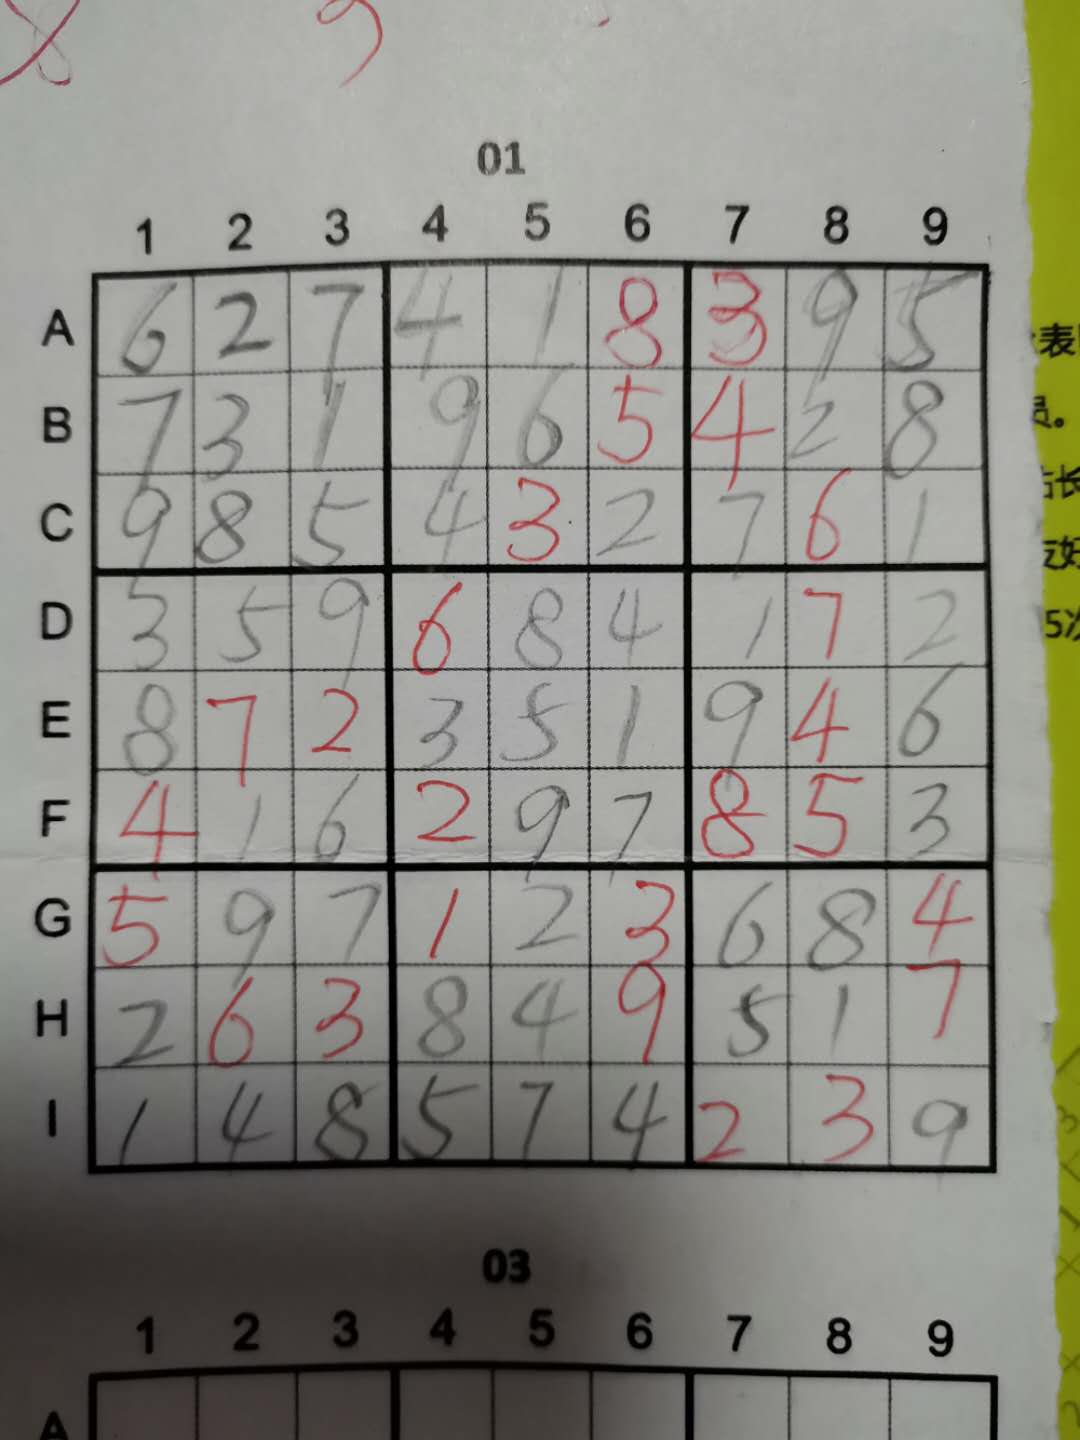 8 9
01
1 2 3 4 5 6 7 8 9
A 6 2 7 4 1 8 3 9 5
B 7 3 1 9 6 5 4 2 8
C 9 8 5 4 3 2 7 6 1
D 3 5 9 6 8 4 1 7 2
E 8 7 2 3 5 1 9 4 6
F 4 1 6 2 9 7 8 5 3
G 5 9 7 1 2 3 6 8 4
H 2 6 3 8 4 9 5 1 7
I 1 4 8 5 7 4 2 3 9
表
员。
站长
友好
5次
03
1 2 3 4 5 6 7 8 9
A